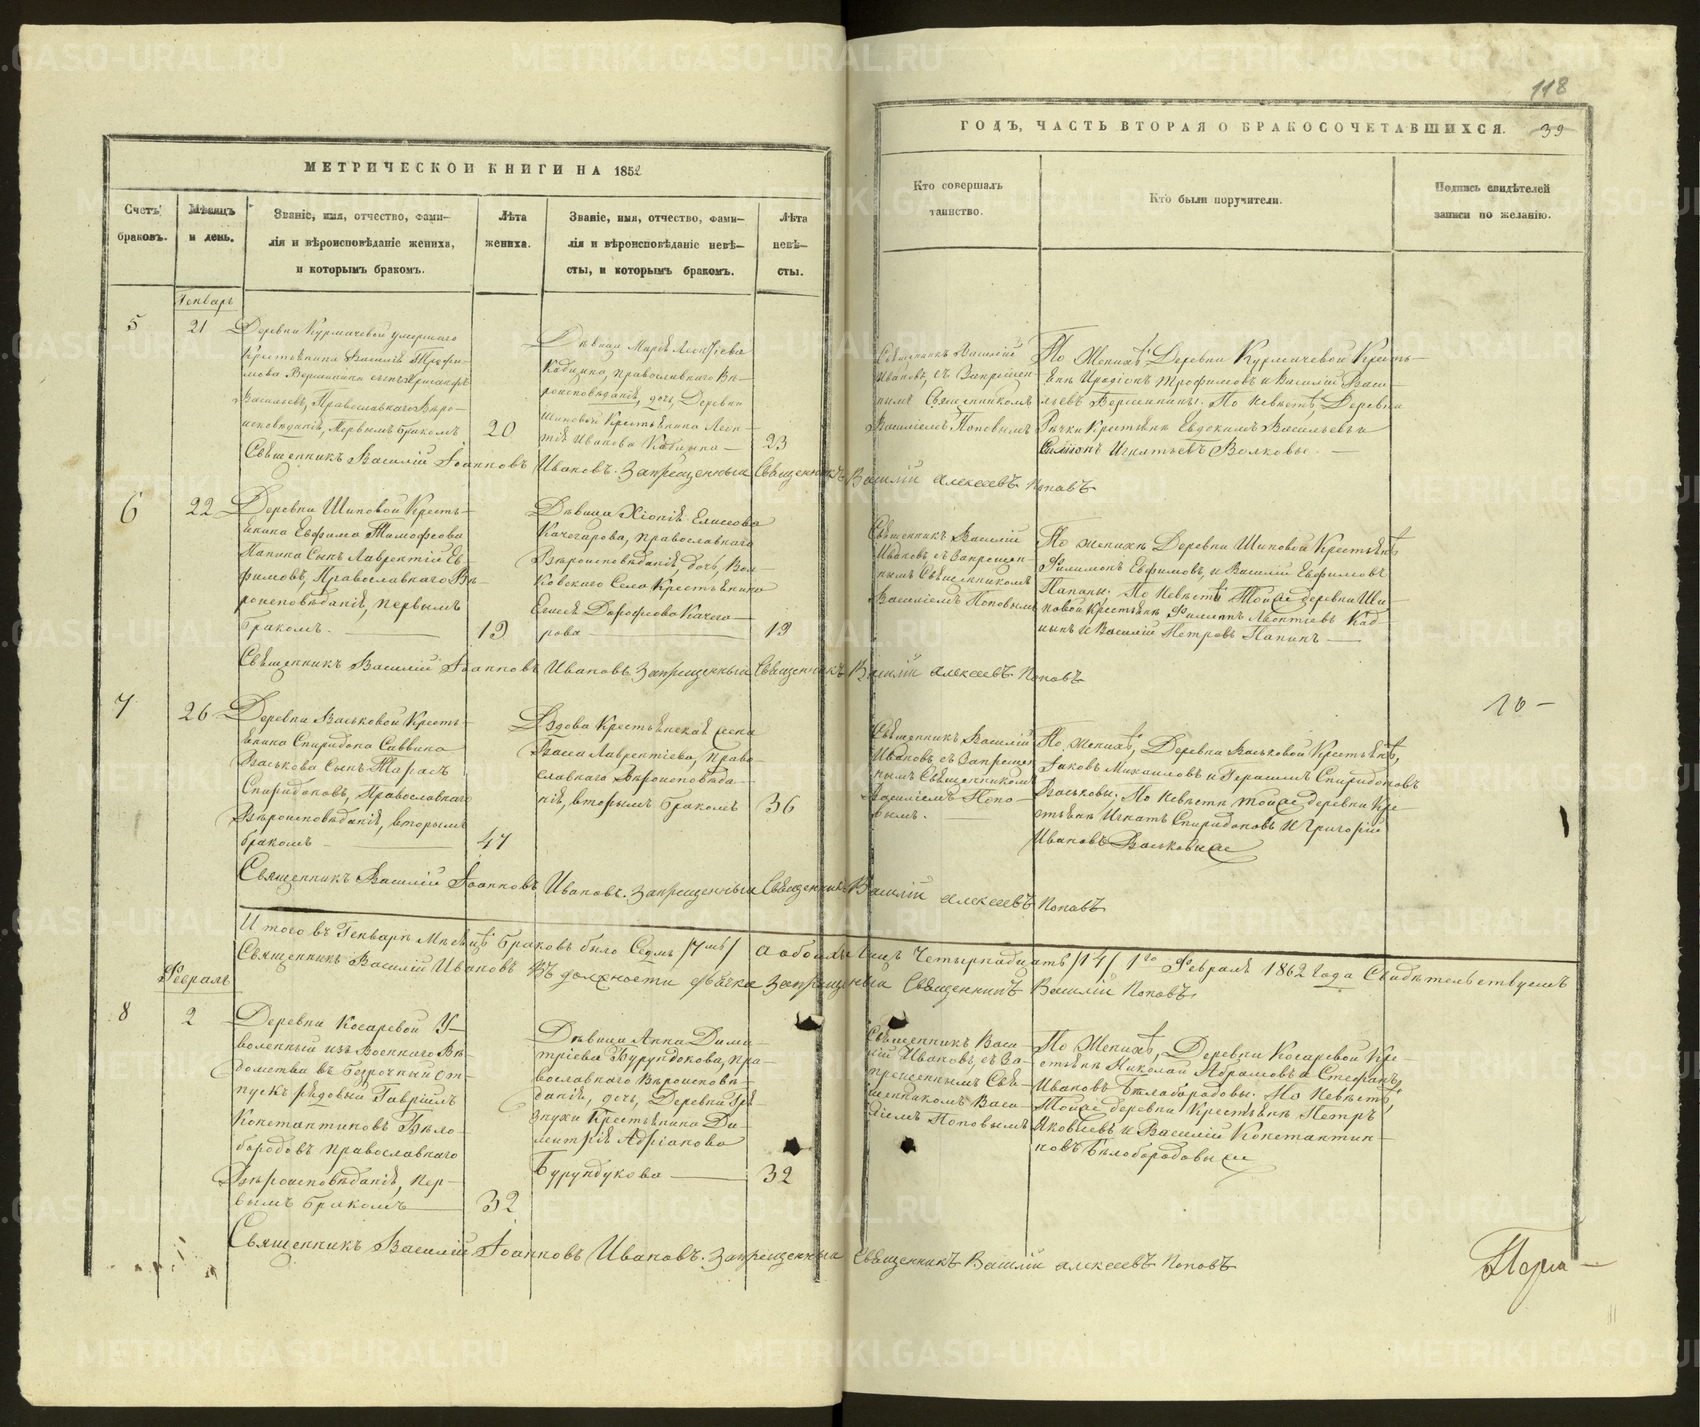 118
МЕТРИЧЕСКОЙ КНИГИ НА 1862
ГОДЪ, ЧАСТЬ ВТОРАЯ О БРАКОСОЧЕТАВШИХСЯ.
39
Счетъ
браковъ.
Мѣсяцъ
и день.
Званіе, имя, отчество, фами-
лія и вѣроисповѣданіе жениха,
и которымъ бракомъ.
Лѣта
жениха.
Званіе, имя, отчество, фами-
лія и вѣроисповѣданіе невѣ-
сты, и которымъ бракомъ.
Лѣта
невѣ-
сты.
Кто совершалъ
таинство.
Кто были поручители.
Подпись свидѣтелей
записи по желанію.
Генварь
5
21
Деревни Курмачевой умершаго
Крестьянина Василія Трофи-
мова Вершинина сынъ
Васильевъ, Православнаго Вѣро-
исповѣданія, Первымъ бракомъ
20
Дѣвица Марія Леонтіева
Кабцина, православнаго Вѣ-
роисповѣданія, дочь, Деревни
Шиповой Крестьянина Леон-
тія Иванова Кабцина
23
Священникъ Василій
Ивановъ, съ Запрещен-
нымъ Священникомъ
Василіемъ Поповымъ
По Женихѣ Деревни Курмачевой Кресть-
яне Иродіонъ Трофимовъ и Василій Васи-
льевъ Вершинины. По Невѣстѣ Деревни
Рычки Крестьяне Евдокимъ Васильевъ и
Симіонъ Игнатьевъ Волковы.
Священникъ Василій Іоанновъ Ивановъ. Запрещенный Священникъ Василій Алексеевъ Поповъ
6
22
Деревни Шиповой Кресть-
янина Евфима Тимофеева
Папина Сынъ Лаврентій Ев-
фимовъ, Православнаго Вѣ-
роисповѣданія, первымъ
бракомъ.
19
Дѣвица Хіонія Елисеева
Качегарова, православнаго
Вѣроисповѣданія, дочь, Вол-
ковскаго Села Крестьянина
Елисея Дорофеева Качега-
рова
19
Священникъ Василій
Ивановъ, съ Запрещен-
нымъ Священникомъ
Василіемъ Поповымъ
По женихѣ Деревни Шиповой Крестьяне
Филимонъ Евфимовъ, и Василій Евфимовъ
Папины. По Невѣстѣ Тойже деревни Ши-
повой Крестьяне Филиппъ Леонтіевъ Каб-
цынъ и Василій Петровъ Папинъ
Священникъ Василій Іоанновъ Ивановъ. Запрещенный Священникъ Василій Алексеевъ Поповъ
7
26
Деревни Васьковой Кресть-
янина Спиридона Саввина
Васькова Сынъ Тарасъ
Спиридоновъ, Православнаго
Вѣроисповѣданія, вторымъ
бракомъ
47
Вдова Крестьянская жена
Васса Лаврентіева, Право-
славнаго Вѣроисповѣда-
нія, вторымъ бракомъ
36
Священникъ Василій
Ивановъ съ Запрещен-
нымъ Священникомъ
Василіемъ Попо-
вымъ.
По женихѣ, Деревни Васьковой Крестьяне,
Іаковъ Михаиловъ и Герасимъ Спиридоновъ
Васьковы; По Невѣстѣ тойже деревни Кре-
стьяне Игнатъ Спиридоновъ и Григорій
Ивановъ Васьковыже
16 -
Священникъ Василій Іоанновъ Ивановъ. Запрещенный Священникъ Василій Алексеевъ Поповъ
Итого въ Генварѣ Мѣсяцѣ браковъ было Седмь /7мь/ а обоихъ лицъ Четырнадцать /14/ 1го Февраля 1862 Года Свидѣтельствуемъ
Священникъ Василій Ивановъ Въ должности дьячка Запрещенный Священникъ Василій Поповъ
Февраль
8
2
Деревни Косаревой У-
воленный изъ Военнаго Вѣ-
домства въ безсрочный от-
пускъ рядовый Гавріилъ
Константиновъ Бѣло-
бородовъ православнаго
Вѣроисповѣданія, пер-
вымъ бракомъ
32
Дѣвица Анна Дими-
тріева Бурундукова, пра-
вославнаго Вѣроисповѣ-
данія, дочь, Деревни Гря-
знухи Крестьянина Ди-
митрія Адріанова
Бурундукова
32
Священникъ Васи-
лій Ивановъ, съ За-
прещеннымъ Свя-
щенникомъ Васи-
ліемъ Поповымъ
По Женихѣ, Деревни Косаревой Кре-
стьяне Николай Абрамовъ и Стефанъ
Ивановъ Бѣлобородовы. По Невѣстѣ,
Тойже деревни Крестьяне Петръ
Яковлевъ и Василій Константин-
новъ Бѣлобородовы же
Священникъ Василій Іоанновъ Ивановъ. Запрещенный Священникъ Василій Алексеевъ Поповъ
METRIKI.GASO-URAL.RU